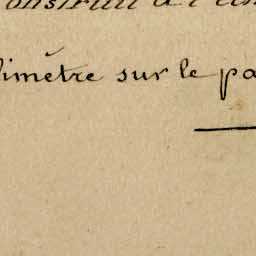 construit à l'
limètre sur le pa